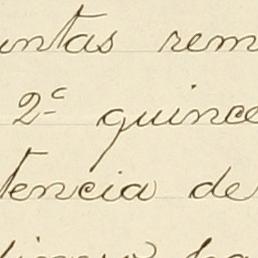 untas rem
2ª quince
tencia de